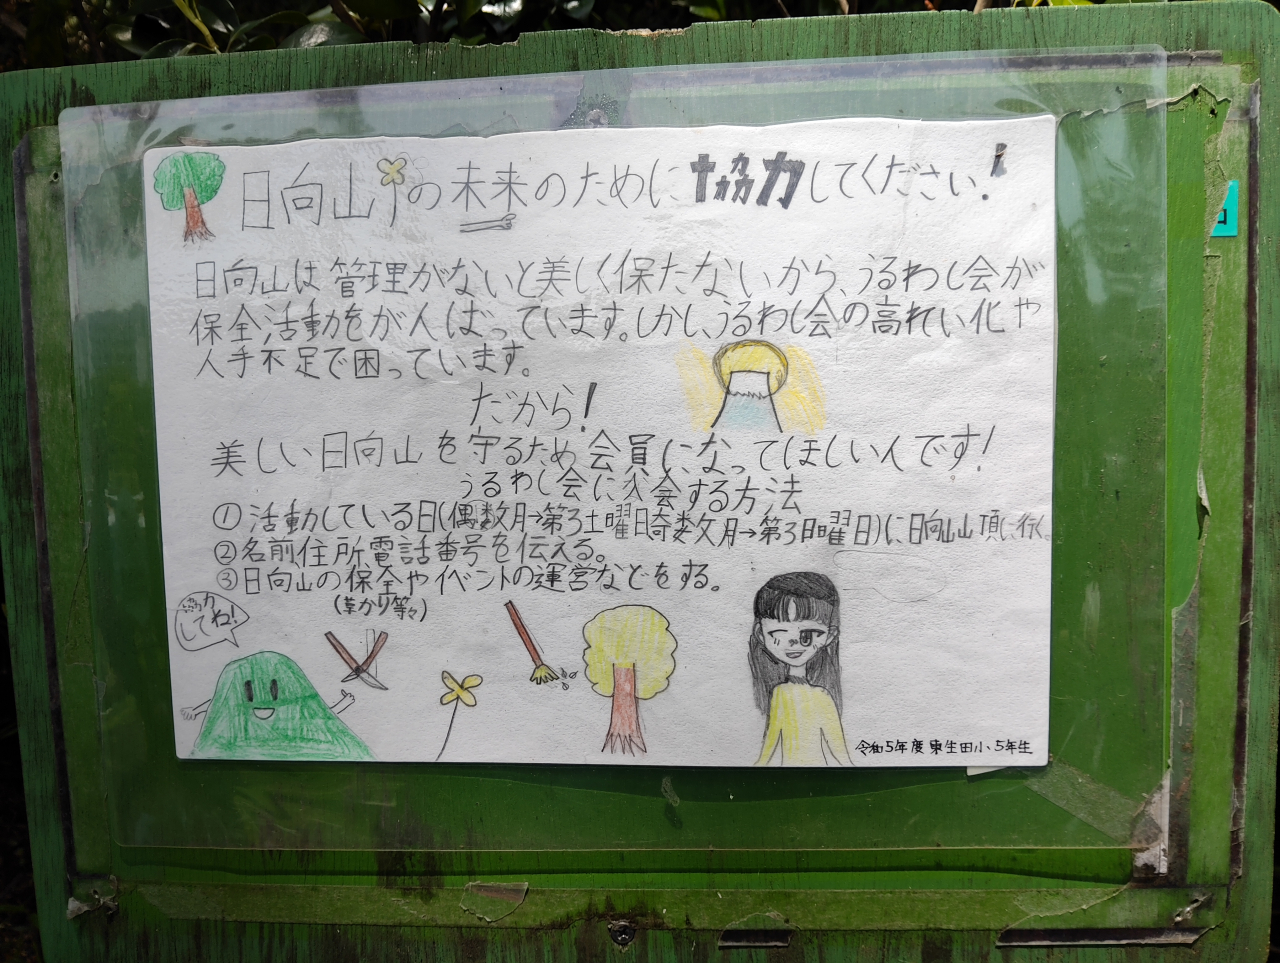 日向山の未来のために協力してください!
日向山は管理がないと美しく保たないから、うるわし会が
保全活動をがんばっています。しかし、うるわし会の高れい化や
人手不足で困っています。
だから!
美しい日向山を守るため会員になってほしい人です!
うるわし会に入会する方法
①活動している日(偶数月→第3土曜日奇数月→第3日曜日)に日向山山頂に行く。
②名前住所電話番号を伝える。
③日向山の保全やイベントの運営などをする。
(草かり等々)
協力
してね!
令和5年度東生田小、5年生